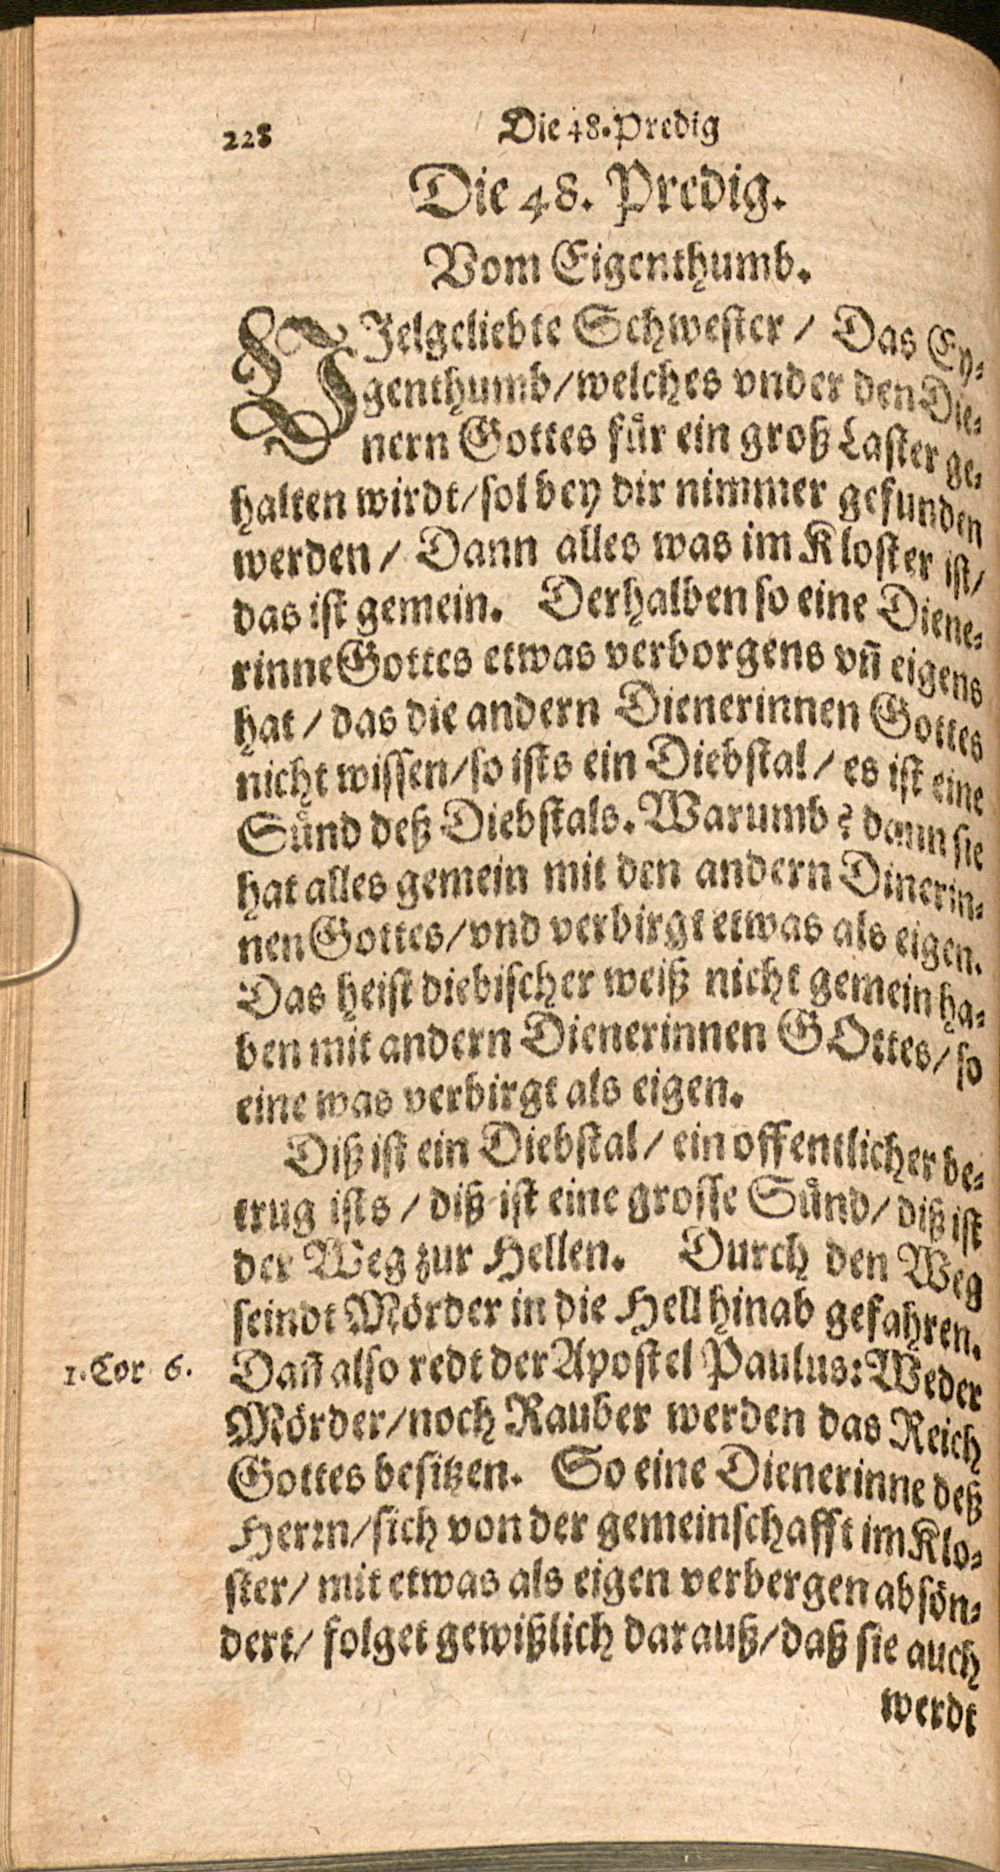 228 Die 48. Predig
Die 48. Predig.
Vom Eigenthumb.
VIelgeliebte Schwester / Das Ey⸗
genthumb/welches vnder den Die⸗
nern Gottes fuͤr ein groß Laster ge⸗
halten wirdt/sol bey dir nimmer gefunden
werden / Dann alles was im Kloster ist/
das ist gemein. Derhalben so eine Diene⸗
rinne Gottes etwas verborgens vn̄ eigens
hat / das die andern Dienerinnen Gottes
nicht wissen/so ists ein Diebstal / es ist eine
Suͤnd deß Diebstals. Warumb? dann sie
hat alles gemein mit den andern Dinerin⸗
nen Gottes/vnd verbirgt etwas als eigen.
Das heist diebischer weiß nicht gemein ha⸗
ben mit andern Dienerinnen GOttes/so
eine was verbirgt als eigen.
Diß ist ein Diebstal / ein offentlicher be⸗
trug ists / diß ist eine grosse Suͤnd/ diß ist
der Weg zur Hellen. Durch den Weg
seindt Moͤrder in die Hell hinab gefahren.
1. Cor 6. Dan̄ also redt der Apostel Paulus: Weder
Moͤrder/noch Rauber werden das Reich
Gottes besitzen. So eine Dienerinne deß
Herrn/sich von der gemeinschafft im Klo⸗
ster/ mit etwas als eigen verbergen absoͤn⸗
dert/ folget gewißlich darauß/daß sie auch
werdt